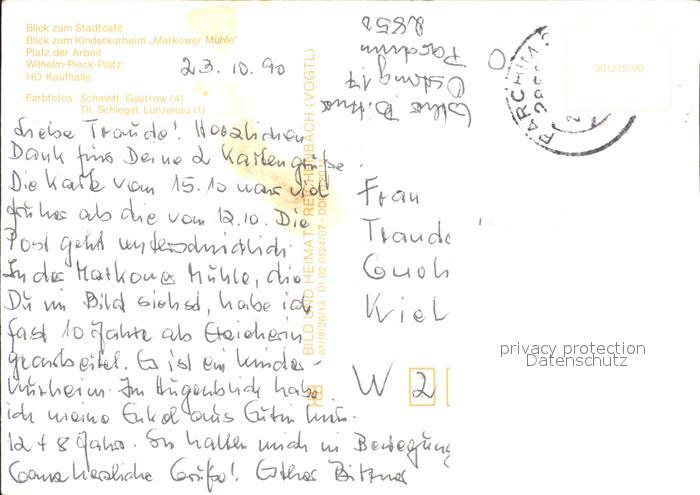 Blick zum Stadtcafé
Blick zum Kinderkurheim „Markower Mühle"
Platz der Arbeit
Wilhelm-Pieck-Platz
HO-Kaufhalle
Farbfotos: Schmidt, Güstrow (4)
Th. Schlegel, Lunzenau (1)
23.10.90
Liebe Traude! Herzlichen
Dank fürs Deine 2 Kartengrüße.
Die Karte vom 15.10 war viel
früher als die vom 12.10. Die
Post geht unterschiedlich.
In der Markower Mühle, die
Du im Bild siehst, habe ich
fast 10 Jahre als Erzieherin
gearbeitet. Es ist ein Kinder-
kurheim. Im Augenblick habe
ich meine Enkel aus Eutin hier.
12 + 8 Jahre. Sie halten mich in Bewegung
Ganz herzliche Grüße! Esther Bittner
BILD UND HEIMAT REICHENBACH (VOGTL)
A1/III/26/13 01 02 0124/07
Esther Bittner
17
Parchim
2852
PARCHIM
301215/90
Frau
Traude
Kiel
W 2
privacy protection
Datenschutz